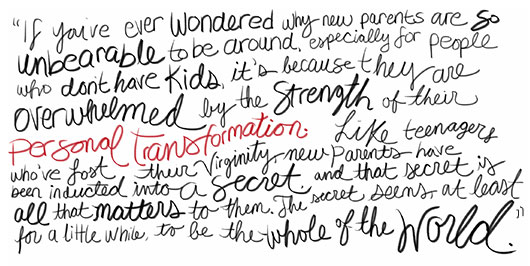 "If you've ever wondered why new parents are so
unbearable to be around, especially for people
who don't have kids, it's because they are
overwhelmed by the strength of their
personal transformation. Like teenagers
who've lost their virginity, new parents have
been inducted into a secret and that secret is
all that matters to them. The secret seems, at least
for a little while, to be the whole of the world."